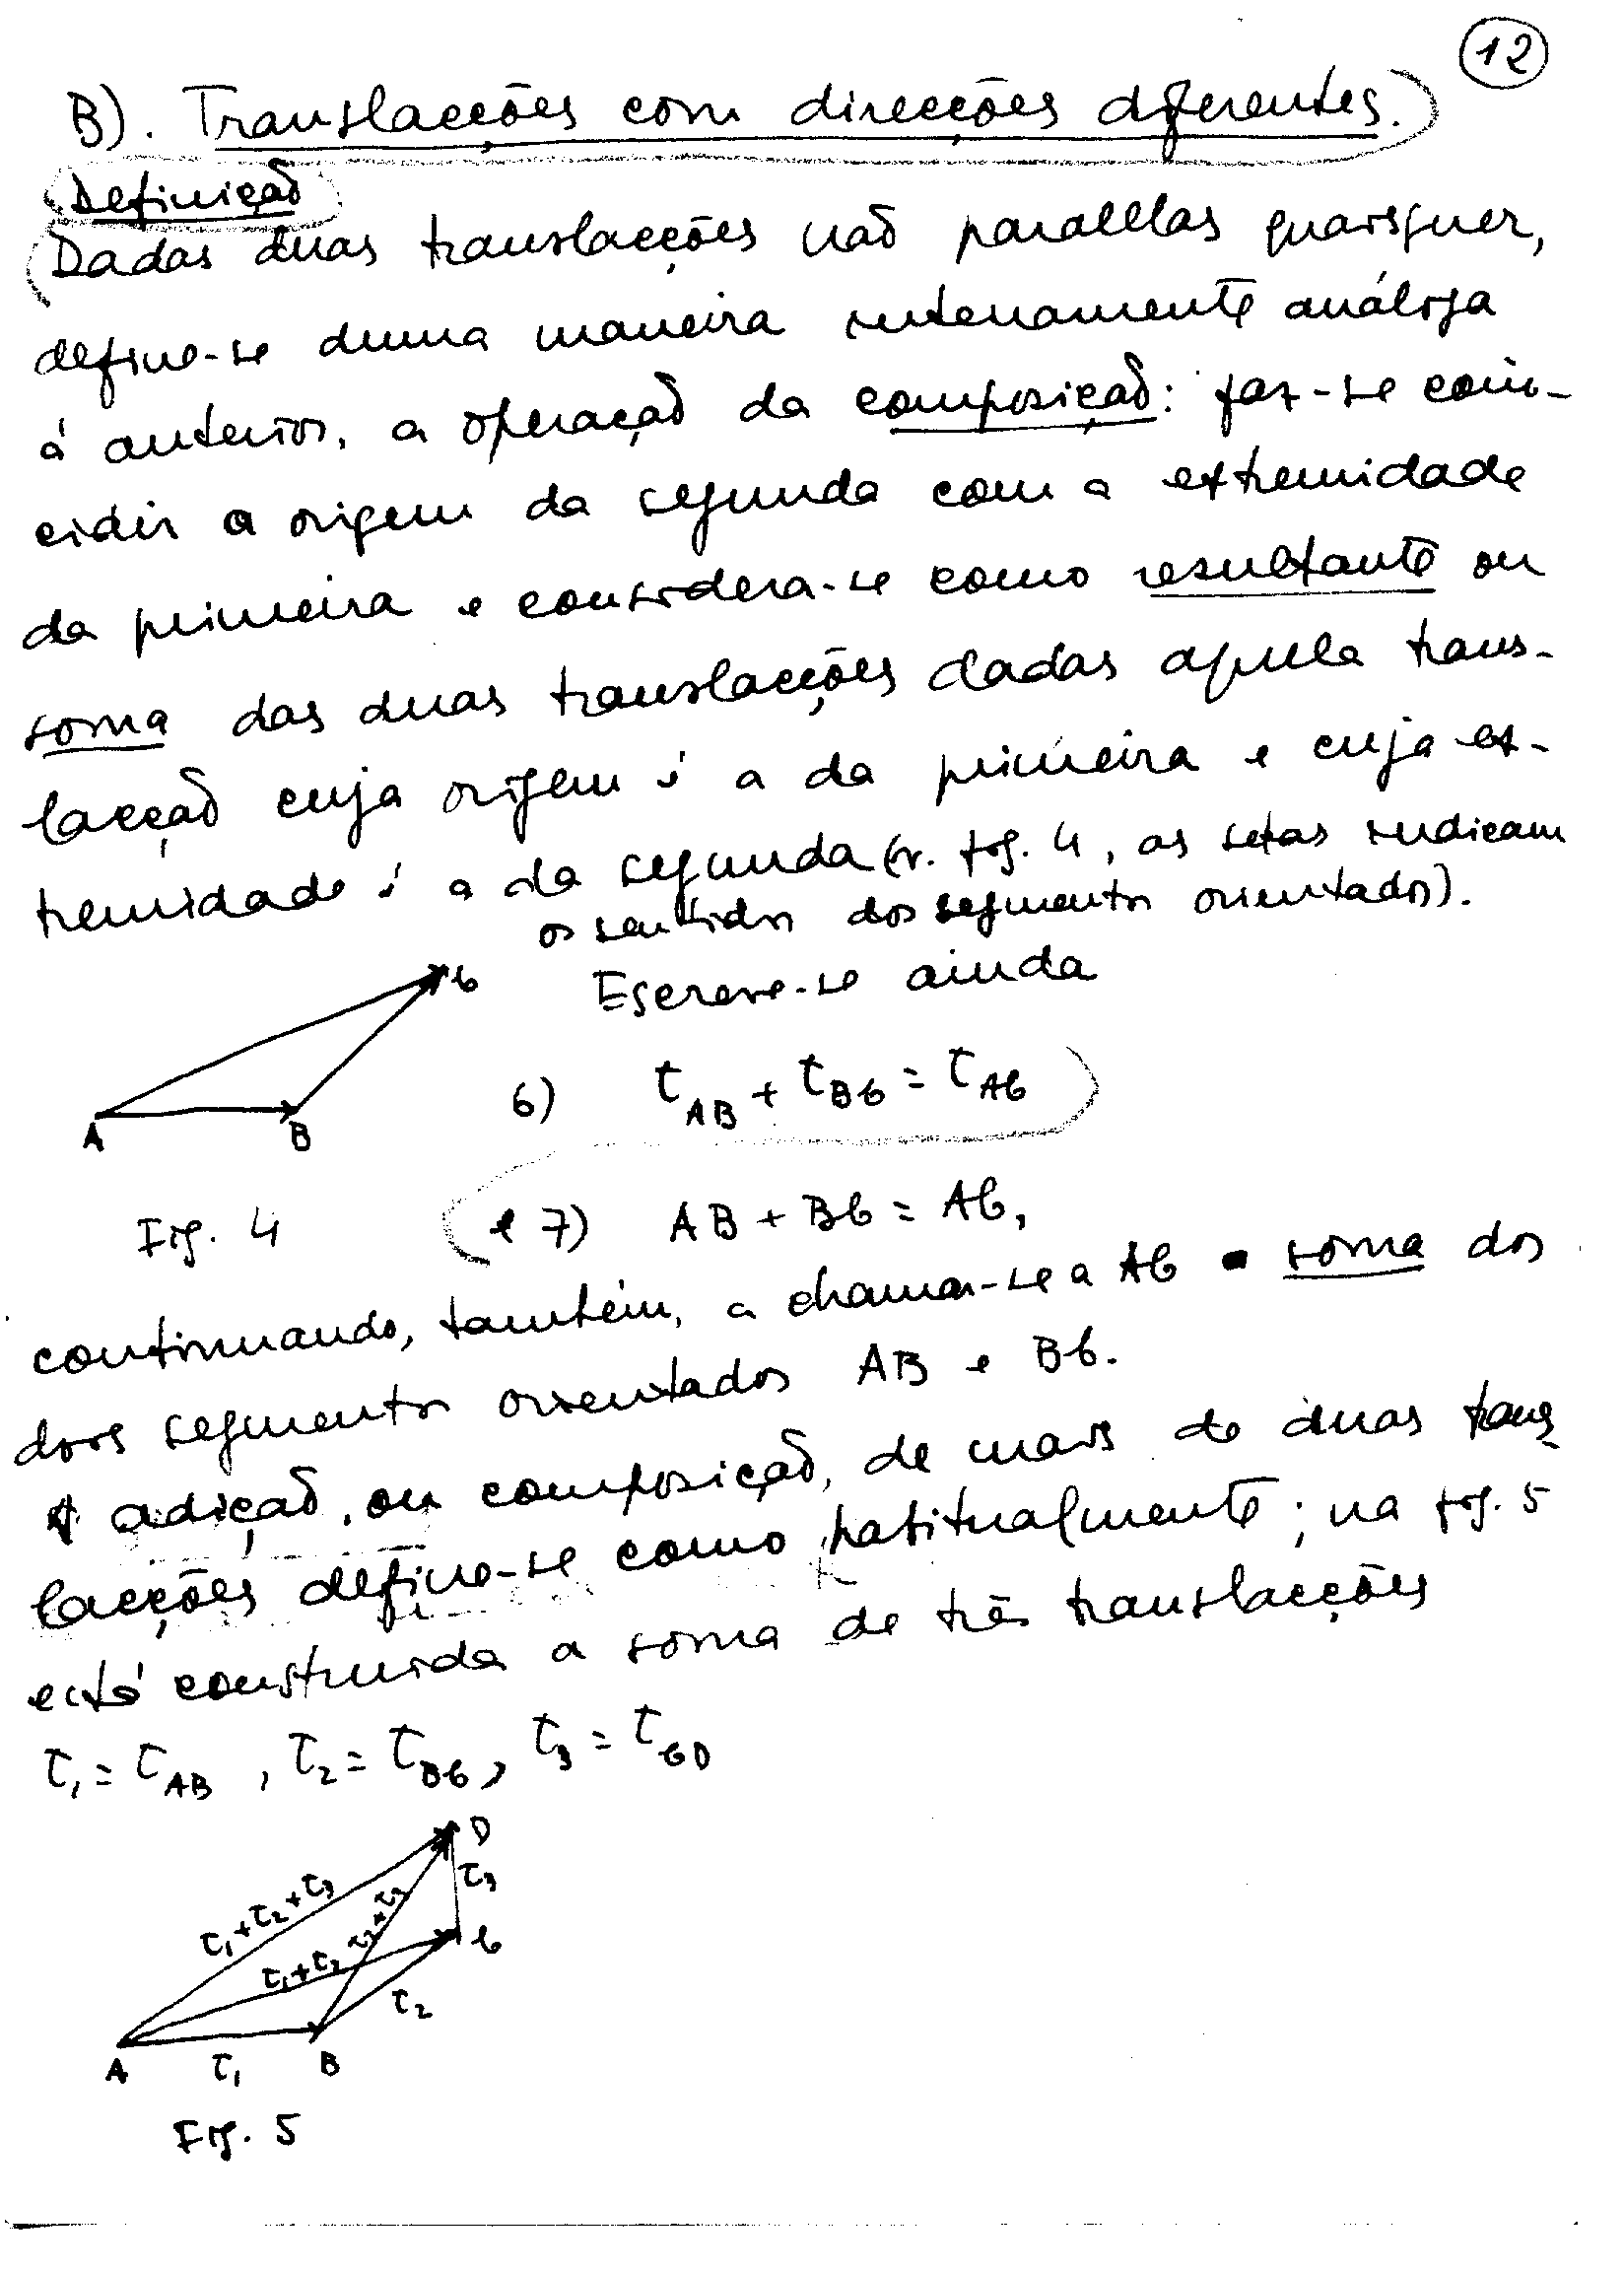 12
B). Translacções com direcções diferentes.
Definição
Dadas duas translacções não paralelas quaisquer,
define-se duma maneira inteiramente análoga
à anterior, a operação da composição: faz-se coin-
cidir a origem da segunda com a extremidade
da primeira e considera-se como resultante ou
soma das duas translacções dadas aquela trans-
lacção cuja origem é a da primeira e cuja ex-
tremidade é a da segunda (v. fig. 4, as setas indicam
os sentidos dos segmentos orientados).
C
Escreve-se ainda
A B
6) τ_AB + τ_BC = τ_AC
Fig. 4
e 7) AB + BC = AC,
continuando, também, a chamar-se a AC soma dos
dois segmentos orientados AB e BC.
A adição, ou composição, de mais de duas trans-
lacções define-se como habitualmente; na fig. 5
está construida a soma de três translacções
τ₁ = τ_AB, τ₂ = τ_BC, τ₃ = τ_CD
D
τ₃
τ₁+τ₂+τ₃
τ₂+τ₃
τ₁+τ₂
C
τ₂
A τ₁ B
Fig. 5